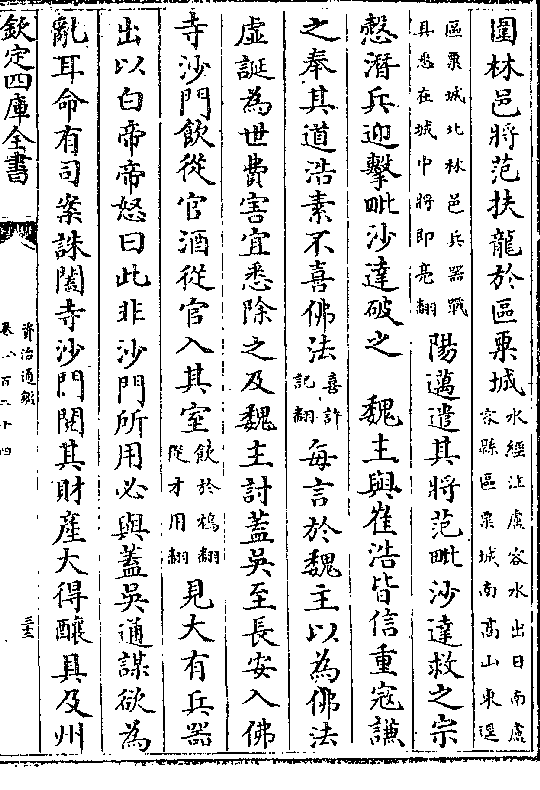 圍林邑將范扶龍於區粟城水經注盧容水出日南盧容縣區粟城南高山東逕
區粟城北林邑兵器戰具悉在城中將即亮翻陽邁遣其將范毗沙達救之宗
慤潛兵迎擊毗沙達破之 魏主與崔浩皆信重寇謙
之奉其道浩素不喜佛法喜許記翻每言於魏主以為佛法
虛誕為世費害宜悉除之及魏主討蓋吳至長安入佛
寺沙門飲從官酒從官入其室飲於鴆翻從才用翻見大有兵器
出以白帝帝怒曰此非沙門所用必與蓋吳通謀欲為
亂耳命有司案誅闔寺沙門閱其財產大得釀具及州
欽定四庫全書
資治通鑑
卷一百二十四